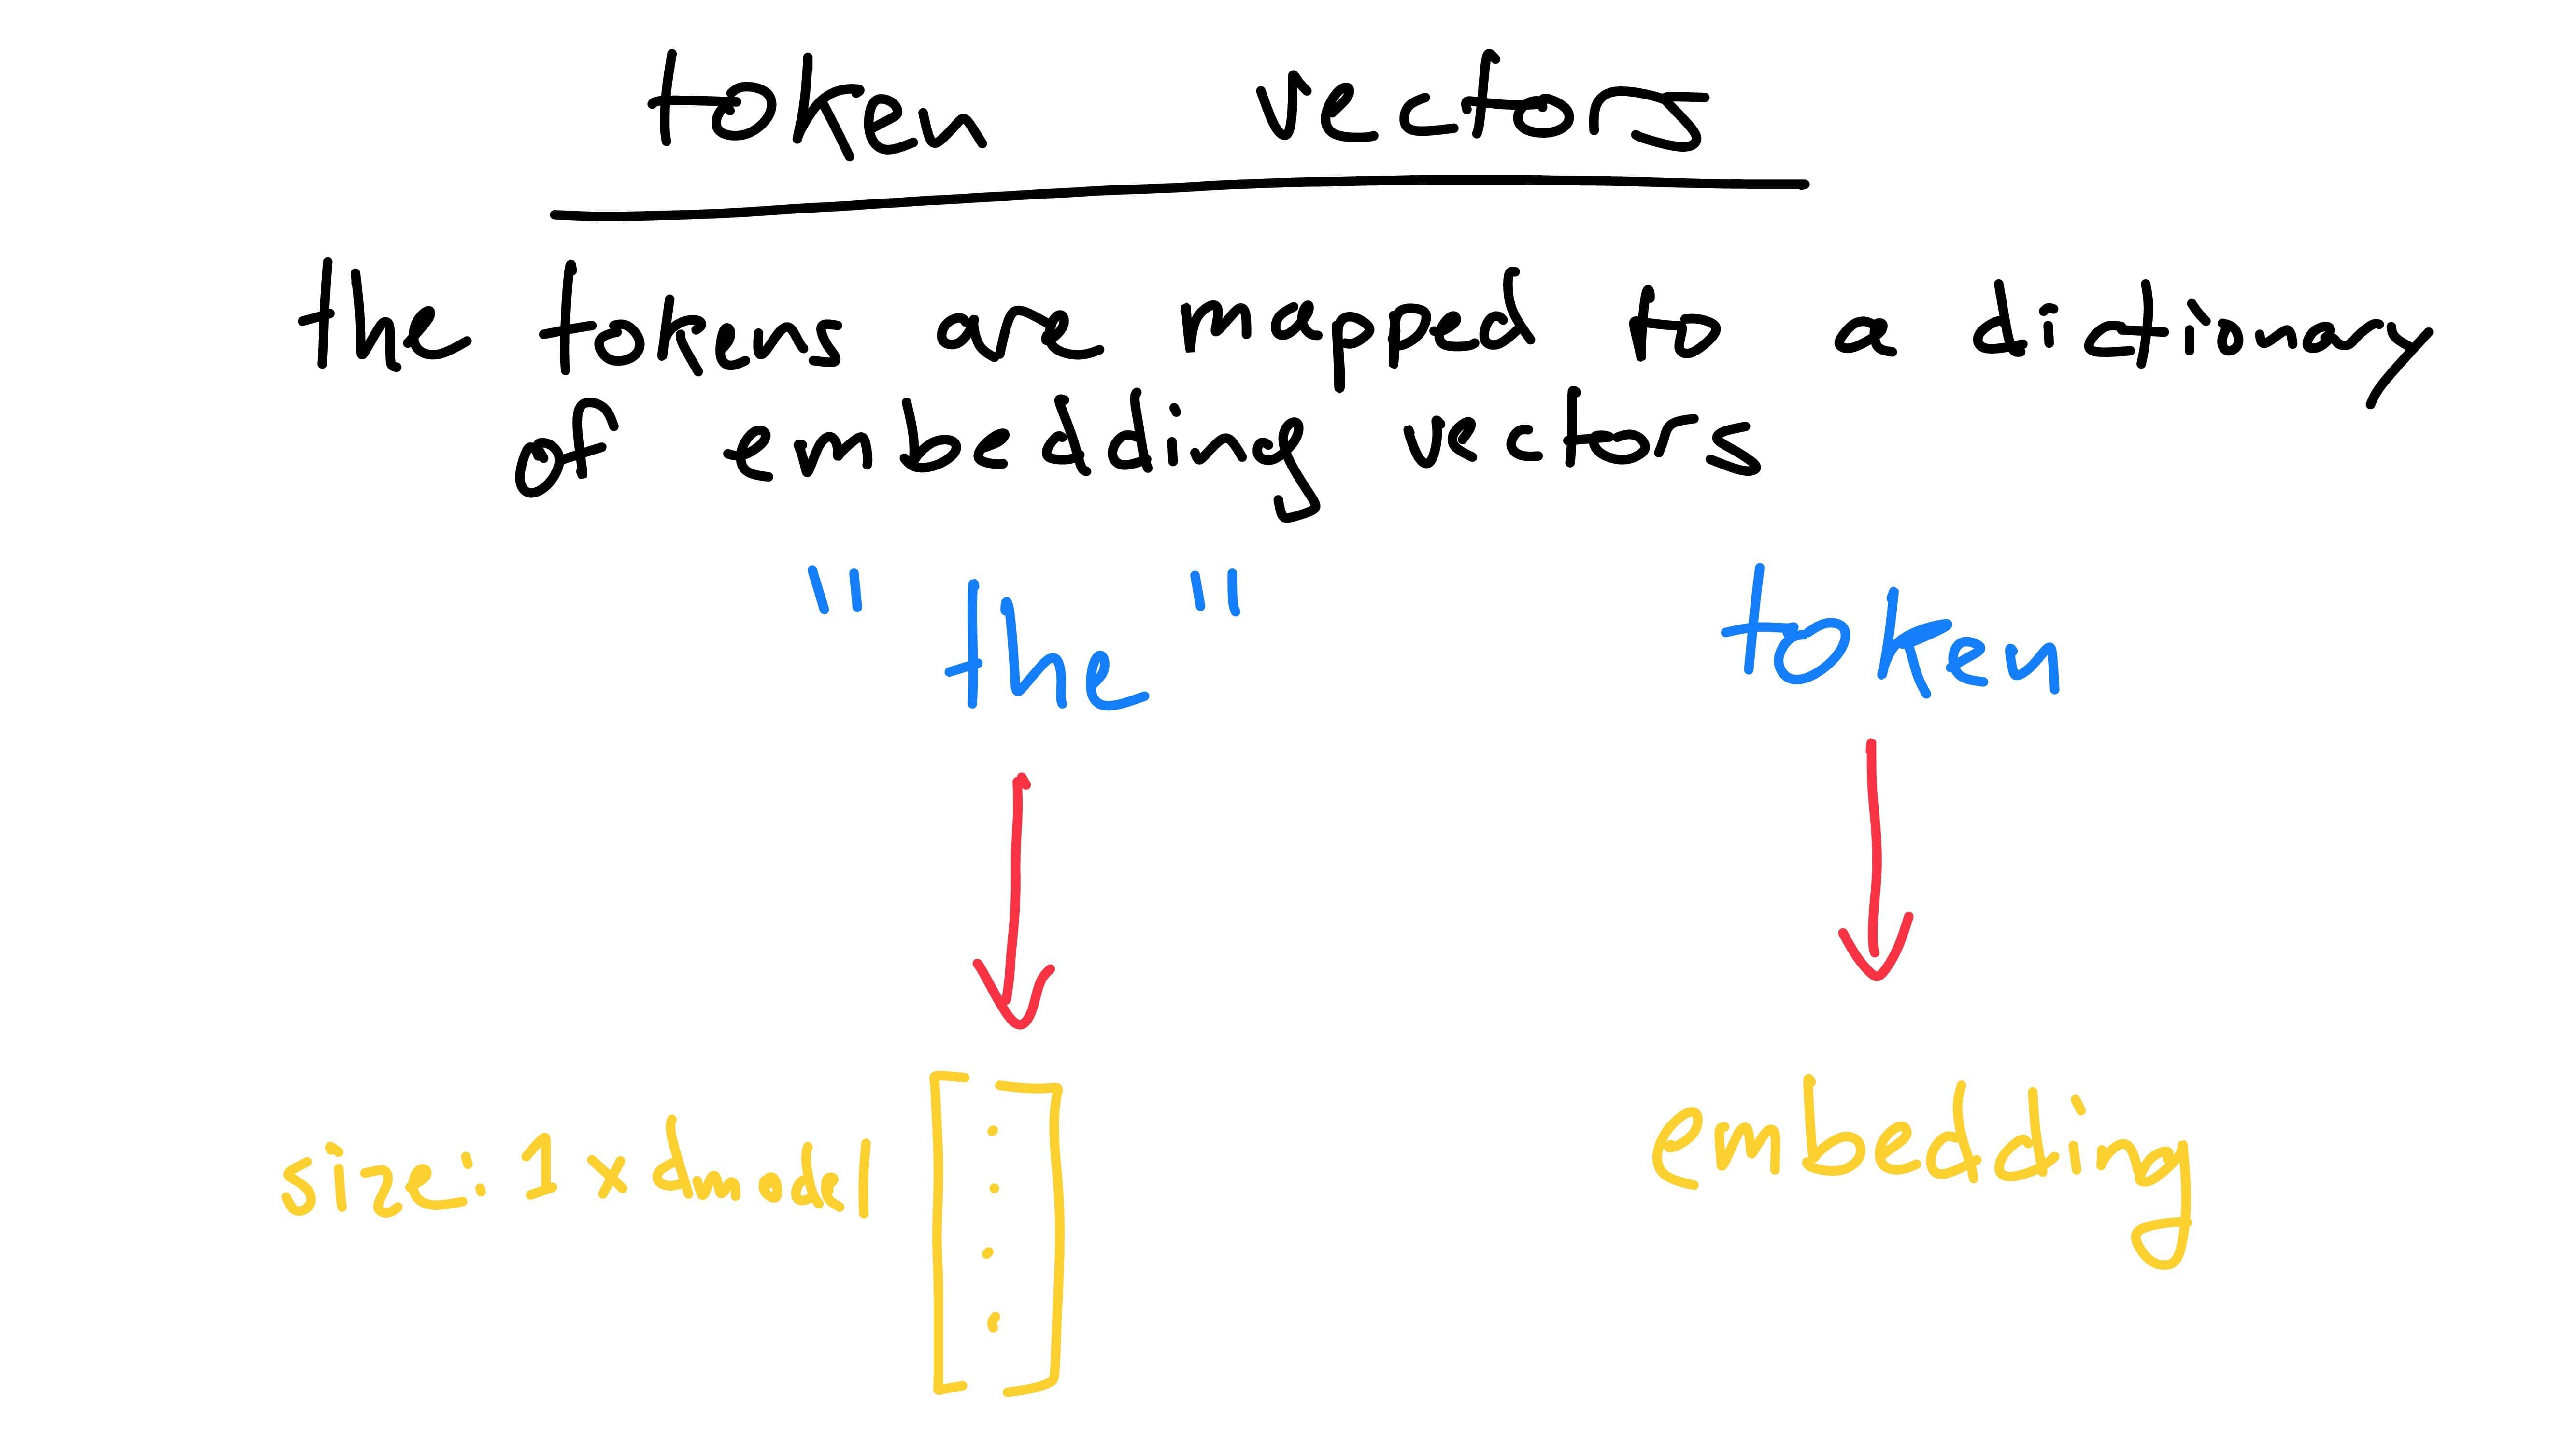 token vectors
the tokens are mapped to a dictionary
of embedding vectors
"the" token
size: 1 x dmodel embedding